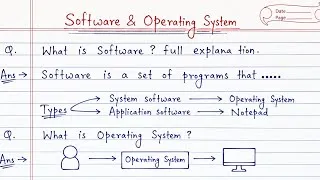 Software & Operating System
Date
Page
Q. What is Software? full explanation.
Ans → Software is a set of programs that .....
Types → System software → Operating System
→ Application software → Notepad
Q. What is Operating System?
Ans → Operating System